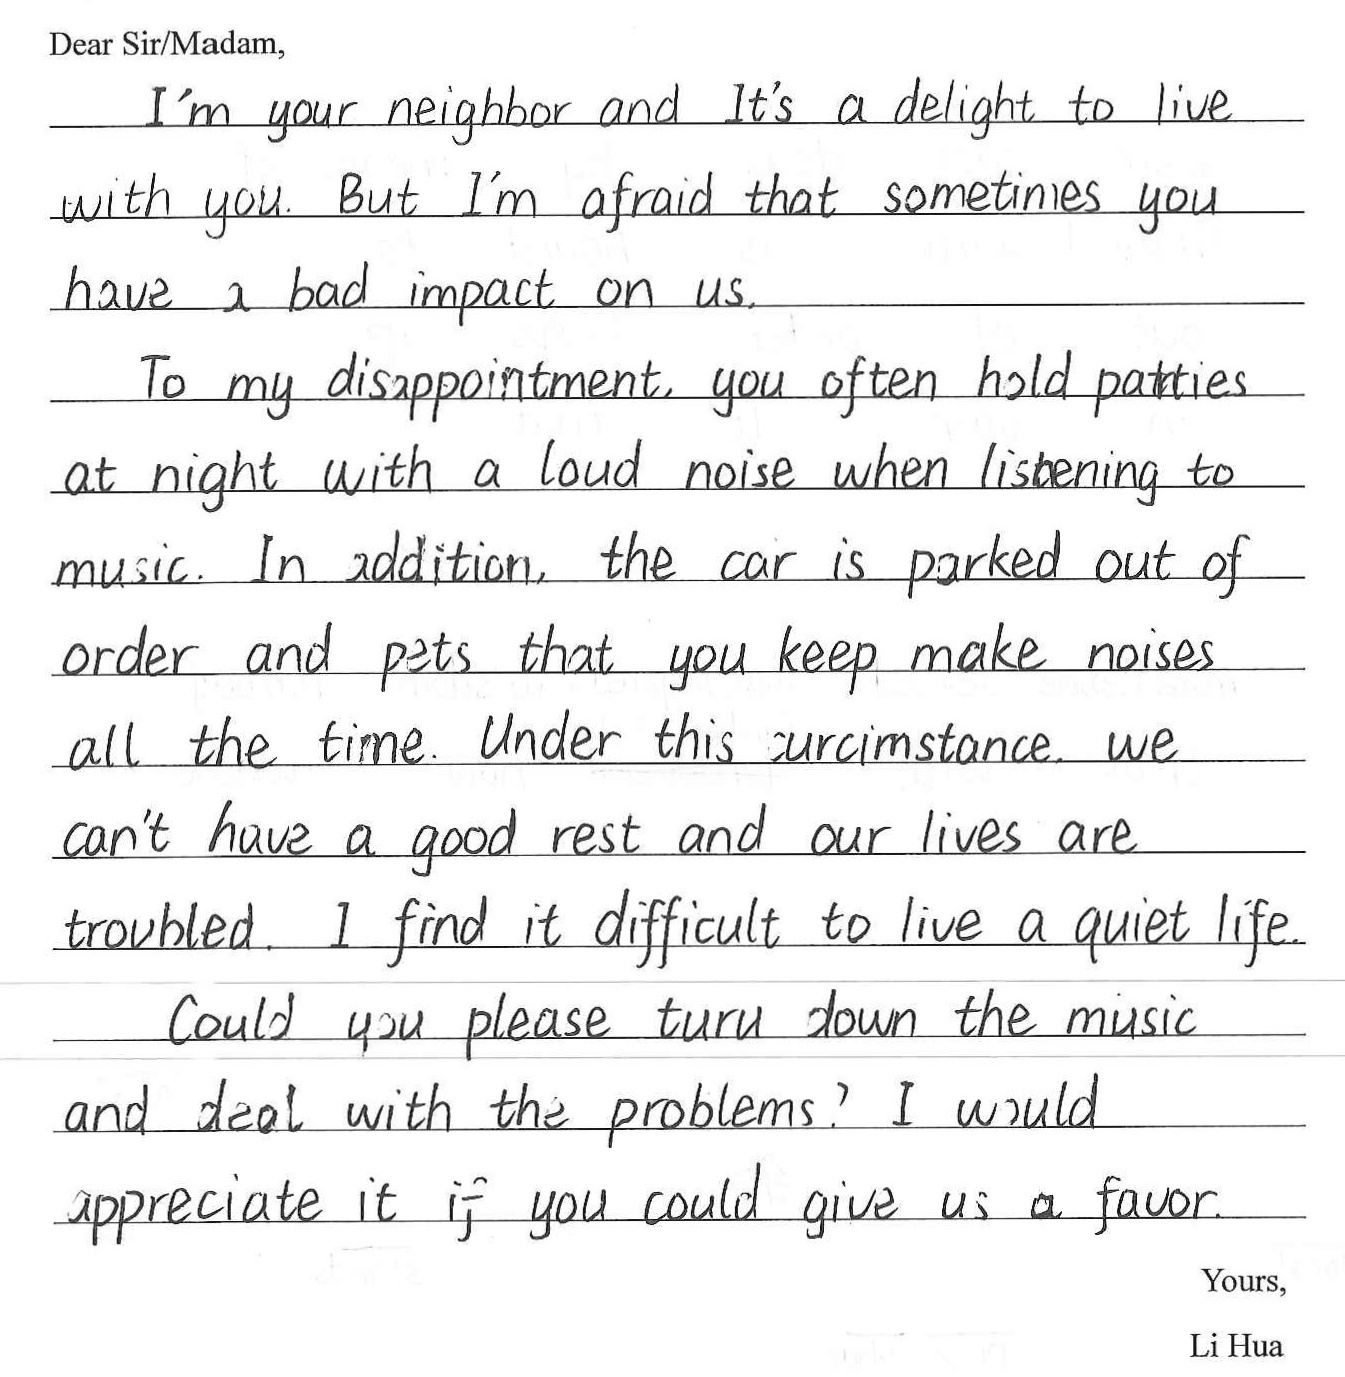 Dear Sir/Madam,
I'm your neighbor and It's a delight to live
with you. But I'm afraid that sometimes you
have a bad impact on us.
To my disappointment, you often hold parties
at night with a loud noise when listening to
music. In addition, the car is parked out of
order and pets that you keep make noises
all the time. Under this curcimstance, we
can't have a good rest and our lives are
troubled. I find it difficult to live a quiet life.
Could you please turn down the music
and deal with the problems? I would
appreciate it if you could give us a favor.
Yours,
Li Hua